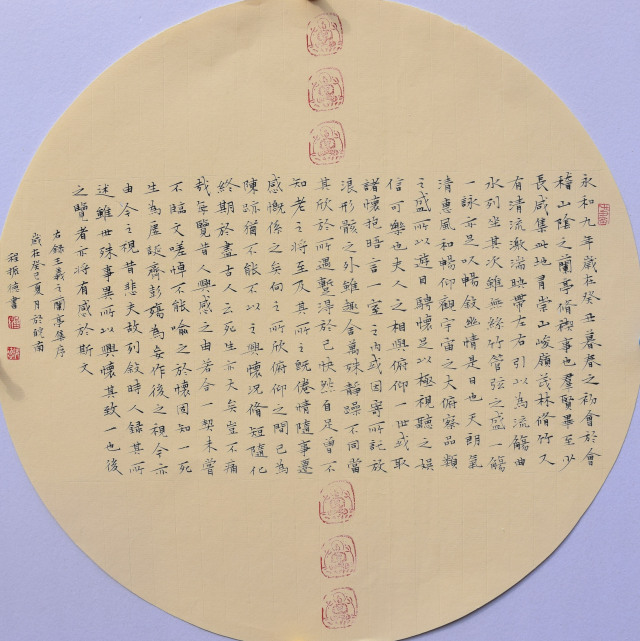 永和九年歲在癸丑暮春之初會於會
稽山陰之蘭亭脩禊事也羣賢畢至少
長咸集此地有崇山峻嶺茂林脩竹又
有清流激湍映帶左右引以為流觴曲
水列坐其次雖無絲竹管弦之盛一觴
一詠亦足以暢敘幽情是日也天朗氣
清惠風和暢仰觀宇宙之大俯察品類
之盛所以遊目騁懷足以極視聽之娛
信可樂也夫人之相與俯仰一世或取
諸懷抱晤言一室之內或因寄所託放
浪形骸之外雖趣舍萬殊靜躁不同當
其欣於所遇暫得於己快然自足曾不
知老之將至及其所之既倦情隨事遷
感慨係之矣向之所欣俯仰之間已為
陳跡猶不能不以之興懷況脩短隨化
終期於盡古人云死生亦大矣豈不痛
哉每覽昔人興感之由若合一契未嘗
不臨文嗟悼不能喻之於懷固知一死
生為虛誕齊彭殤為妄作後之視今亦
由今之視昔悲夫故列敘時人錄其所
述雖世殊事異所以興懷其致一也後
之覽者亦將有感於斯文
右錄王羲之蘭亭集序
歲在癸巳夏月於皖南
程振德書